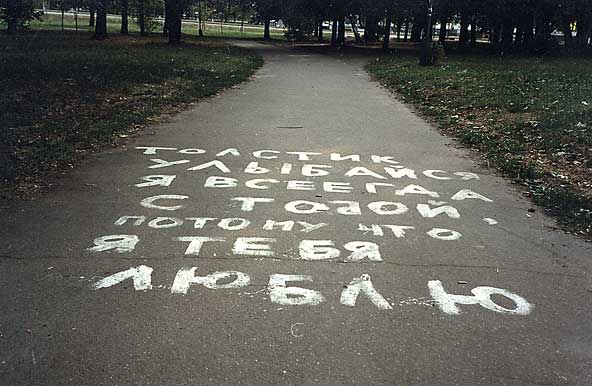 ТОЛСТИК
УЛЫБАЙСЯ
Я ВСЕЕГДА
С ТОБОЙ,
ПОТОМУ ЧТО
Я ТЕБЯ
ЛЮБЛЮ